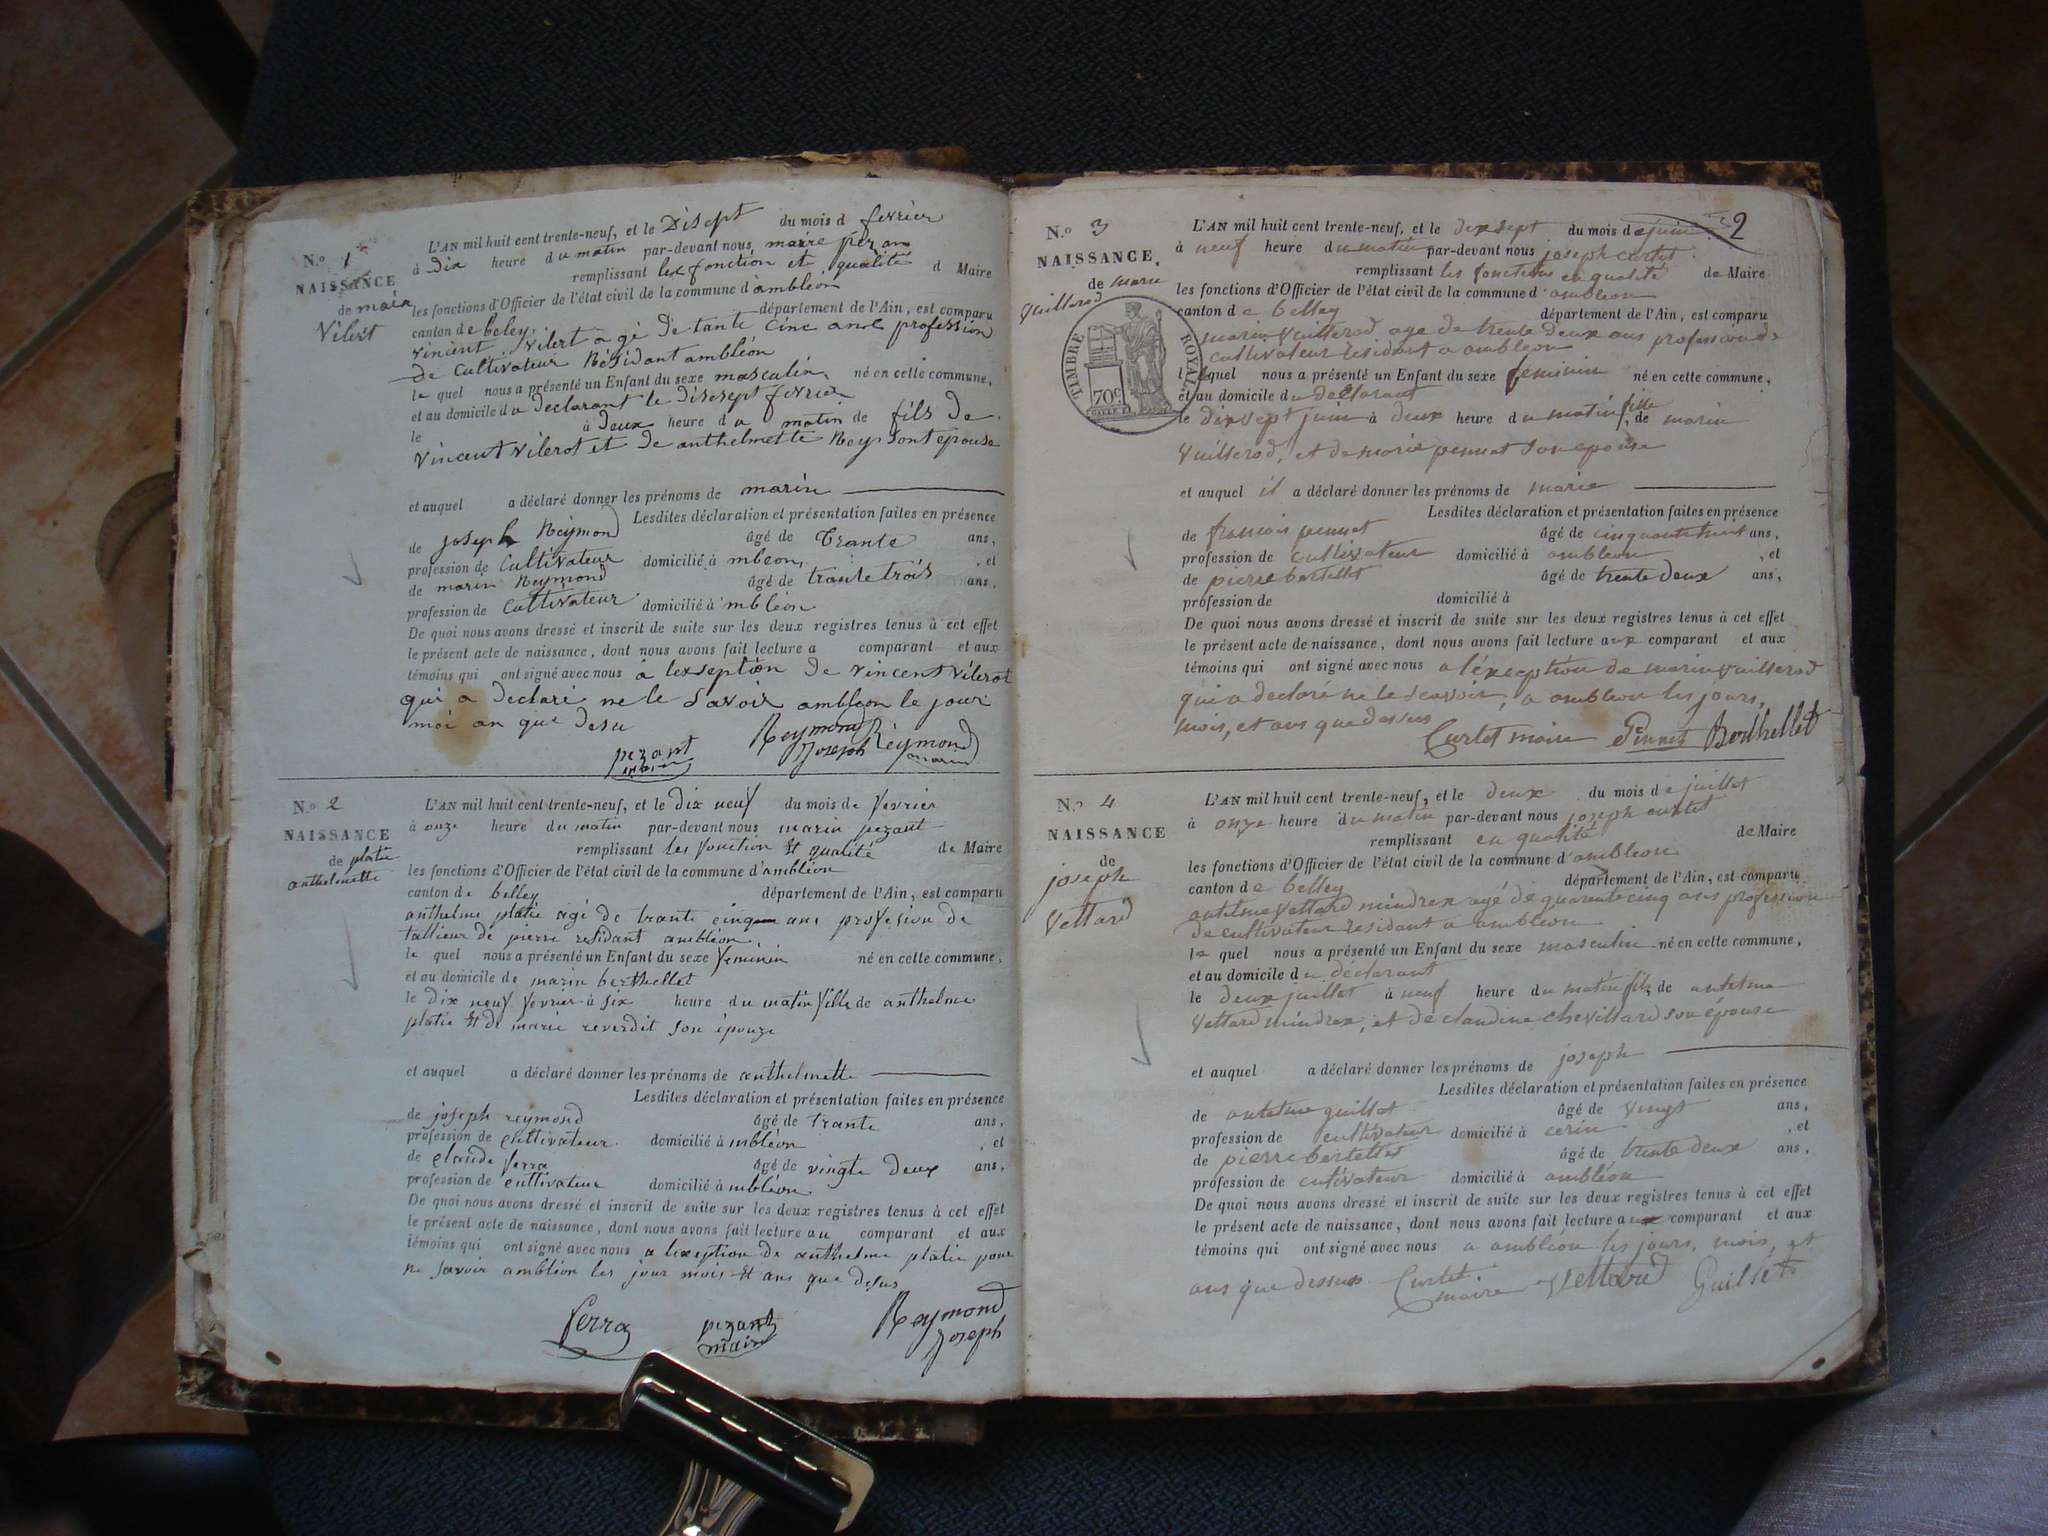 N.o 1
NAISSANCE
de marin
Vilert
L'AN mil huit cent trente-neuf, et le Disept du mois d fevrier
à Dix heure du matin par-devant nous maire pezan
remplissant les fonction et qualité d Maire
les fonctions d'Officier de l'état civil de la commune d'ambléon
canton de beley. département de l'Ain, est comparu
vincent vilert agé De tante cinc anc profession
De Cultivateur Résidant ambléon
le quel nous a présenté un Enfant du sexe masculin né en cette commune,
et au domicile du declarant le disesept fevrier
le à Deux heure du matin de fils de
vincent vilerot et de anthelmette Reysont épouse
et auquel a déclaré donner les prénoms de marin
Lesdites déclaration et présentation faites en présence
de joseph Reymond âgé de Trante ans,
profession de Cultivateur domicilié à mbleon, et
de marin Reymond âgé de trante trois ans,
profession de Cultivateur domicilié à mbléon
De quoi nous avons dressé et inscrit de suite sur les deux registres tenus à cet effet
le présent acte de naissance, dont nous avons fait lecture a comparant et aux
témoins qui ont signé avec nous à lexseption de vincent vilerot
qui a declaré ne le Savoir ambleon le jour
moi an que Desu
pezant maire Reymond Joseph Reymond marin
N.o 2
NAISSANCE
de platie
anthelmette
L'AN mil huit cent trente-neuf, et le dix neuf du mois de fevrier
à onze heure du matin par-devant nous marin pezant
remplissant les fonction et qualité de Maire
les fonctions d'Officier de l'état civil de la commune d'ambléon
canton de belley département de l'Ain, est comparu
anthelme platie agé de trante cinq ans profesion de
tallieur de pierre residant ambléon
le quel nous a présenté un Enfant du sexe feminin né en cette commune,
et au domicile de marin berthellet
le dix neuf fevrier à six heure du matin fille de anthelme
platie et de marie reverdit son épouze
et auquel a déclaré donner les prénoms de anthelmette
Lesdites déclaration et présentation faites en présence
de joseph reymond âgé de trante ans,
profession de cultivateur domicilié à mbléon, et
de claude ferra âgé de vingte deux ans,
profession de cultivateur domicilié à mbléon
De quoi nous avons dressé et inscrit de suite sur les deux registres tenus à cet effet
le présent acte de naissance, dont nous avons fait lecture au comparant et aux
témoins qui ont signé avec nous a lexeption de anthelme platie pour
ne savoir ambléon les jour mois et ans que desus
ferra pezant maire Reymond Joseph
2
N.o 3
NAISSANCE,
de marie
Vuillerod
TIMBRE ROYAL.
70c
L'AN mil huit cent trente-neuf, et le dix sept du mois de juin
à neuf heure du matin par-devant nous joseph curtet
remplissant les fonctions en qualité de Maire
les fonctions d'Officier de l'état civil de la commune d'ambléon
canton de belley département de l'Ain, est comparu
marin Vuillerod age de trente deux ans profession de
cultivateur résidant a ambléon
lequel nous a présenté un Enfant du sexe féminin né en cette commune,
et au domicile du déclarant
le dix sept juin à deux heure du matin fille de marin
Vuillerod, et de marie pennet son épouse
et auquel il a déclaré donner les prénoms de marie
Lesdites déclaration et présentation faites en présence
de francois pennet âgé de cinquante huit ans,
profession de cultivateur domicilié à ambléon, et
de pierre bertellet âgé de trente deux ans,
profession de domicilié à
De quoi nous avons dressé et inscrit de suite sur les deux registres tenus à cet effet
le présent acte de naissance, dont nous avons fait lecture aux comparant et aux
témoins qui ont signé avec nous a l'éxception de marin vuillerod
qui a declaré ne le scavoir, a ambleon les jours,
mois, et ans que dessus
Curtet maire Pennet Berthellet
N.o 4
NAISSANCE
de
joseph
Vettard
L'AN mil huit cent trente-neuf, et le deux du mois de juillet
à onze heure du matin par-devant nous joseph curtet
remplissant en qualité de Maire
les fonctions d'Officier de l'état civil de la commune d'ambleon
canton de belley département de l'Ain, est comparu
antelme Vettard mindrex agé de quarente cinq ans profession
de cultivateur résidant a ambleon
le quel nous a présenté un Enfant du sexe masculin né en cette commune,
et au domicile du déclarant
le deux juillet à neuf heure du matin fils de antelme
Vettard mindrex, et de claudine chevillard son épouse
et auquel a déclaré donner les prénoms de joseph
Lesdites déclaration et présentation faites en présence
de antelme guillet âgé de vingt ans,
profession de cultivateur domicilié à cerin, et
de pierre bertellet âgé de trente deux ans,
profession de cultivateur domicilié à ambléon
De quoi nous avons dressé et inscrit de suite sur les deux registres tenus à cet effet
le présent acte de naissance, dont nous avons fait lecture aux comparant et aux
témoins qui ont signé avec nous a ambléon les jours, mois, et
ans que dessus Curtet maire Vettard Guillet